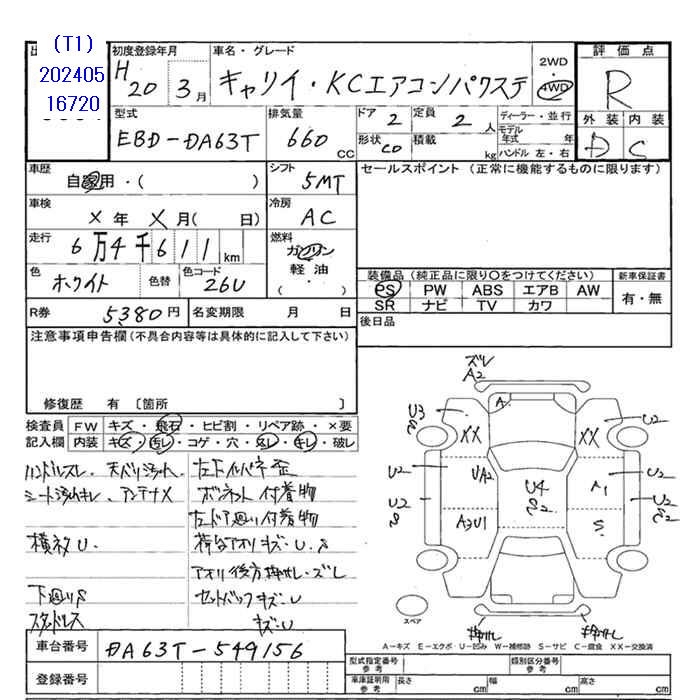 (T1)
202405
16720
初度登録年月
H20 3月
車名・グレード
キャリイ・KCエアコンパワステ
2WD
4WD
評価点
R
外装 内装
D C
型式
EBD-DA63T
排気量
660 CC
ドア 2
定員 2 人
形状 CD
積載 kg
ディーラー・並行
モデル年式 年
ハンドル 左・右
車歴
自家用・( )
シフト
5MT
セールスポイント (正常に機能するものに限ります)
車検
X 年 X 月( 日)
冷房
AC
走行
6万4千611km
燃料
ガソリン
軽油
( ・ )
色
ホワイト
色替
色コード
26U
装備品(純正品に限り○をつけてください)
新車保証書
PS PW ABS エアB AW
SR ナビ TV カワ
有・無
R券 5380円
名変期限 月 日
後日品
注意事項申告欄(不具合内容等は具体的に記入して下さい)
修復歴 有 〔箇所 〕
検査員記入欄
FW キズ・飛石・ヒビ割・リペア跡・×要
内装 キズ・汚レ・コゲ・穴・スレ・キレ・破レ
ハンドルスレ、天バリ汚れ、
シート汚れキレ、アンテナX
横ネタU.
下廻りS
スタッドレス
左フロントインパネ歪
ボンネット付着物
左ドア廻り付着物
荷台アオリキズ・U.S
アオリ後方押サレ・ズレ
セットバックキズ・U
キズ・U
ズレ
A2
A.
U3
XX
XX
U2
U2
UA2
U4
S2
A1
U2
S
U2
S2
A3U1
S.
スペア
押サレ
押サレ
A-キズ E-エクボ U-凹み W-補修跡 S-サビ C-腐食 XX-交換済
車台番号
DA63T-549156
登録番号
型式指定番号 参考
類別区分番号 参考
車庫証明用 参考
長さ cm
幅 cm
高さ cm